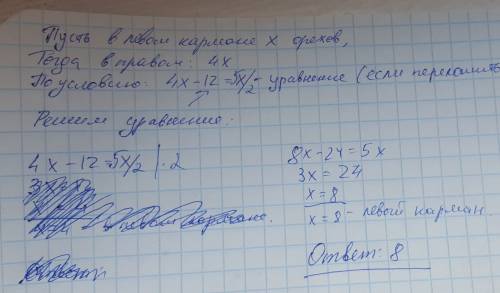 Пусть в левом кармане x орехов,
Тогда в правом: 4x
По условию: 4x-12=5x/2 - уравнение (если переложить
Решим уравнение:
4x-12=5x/2 | ·2
8x-24=5x
3x=24
x=8
x=8 - левый карман
Ответ: 8